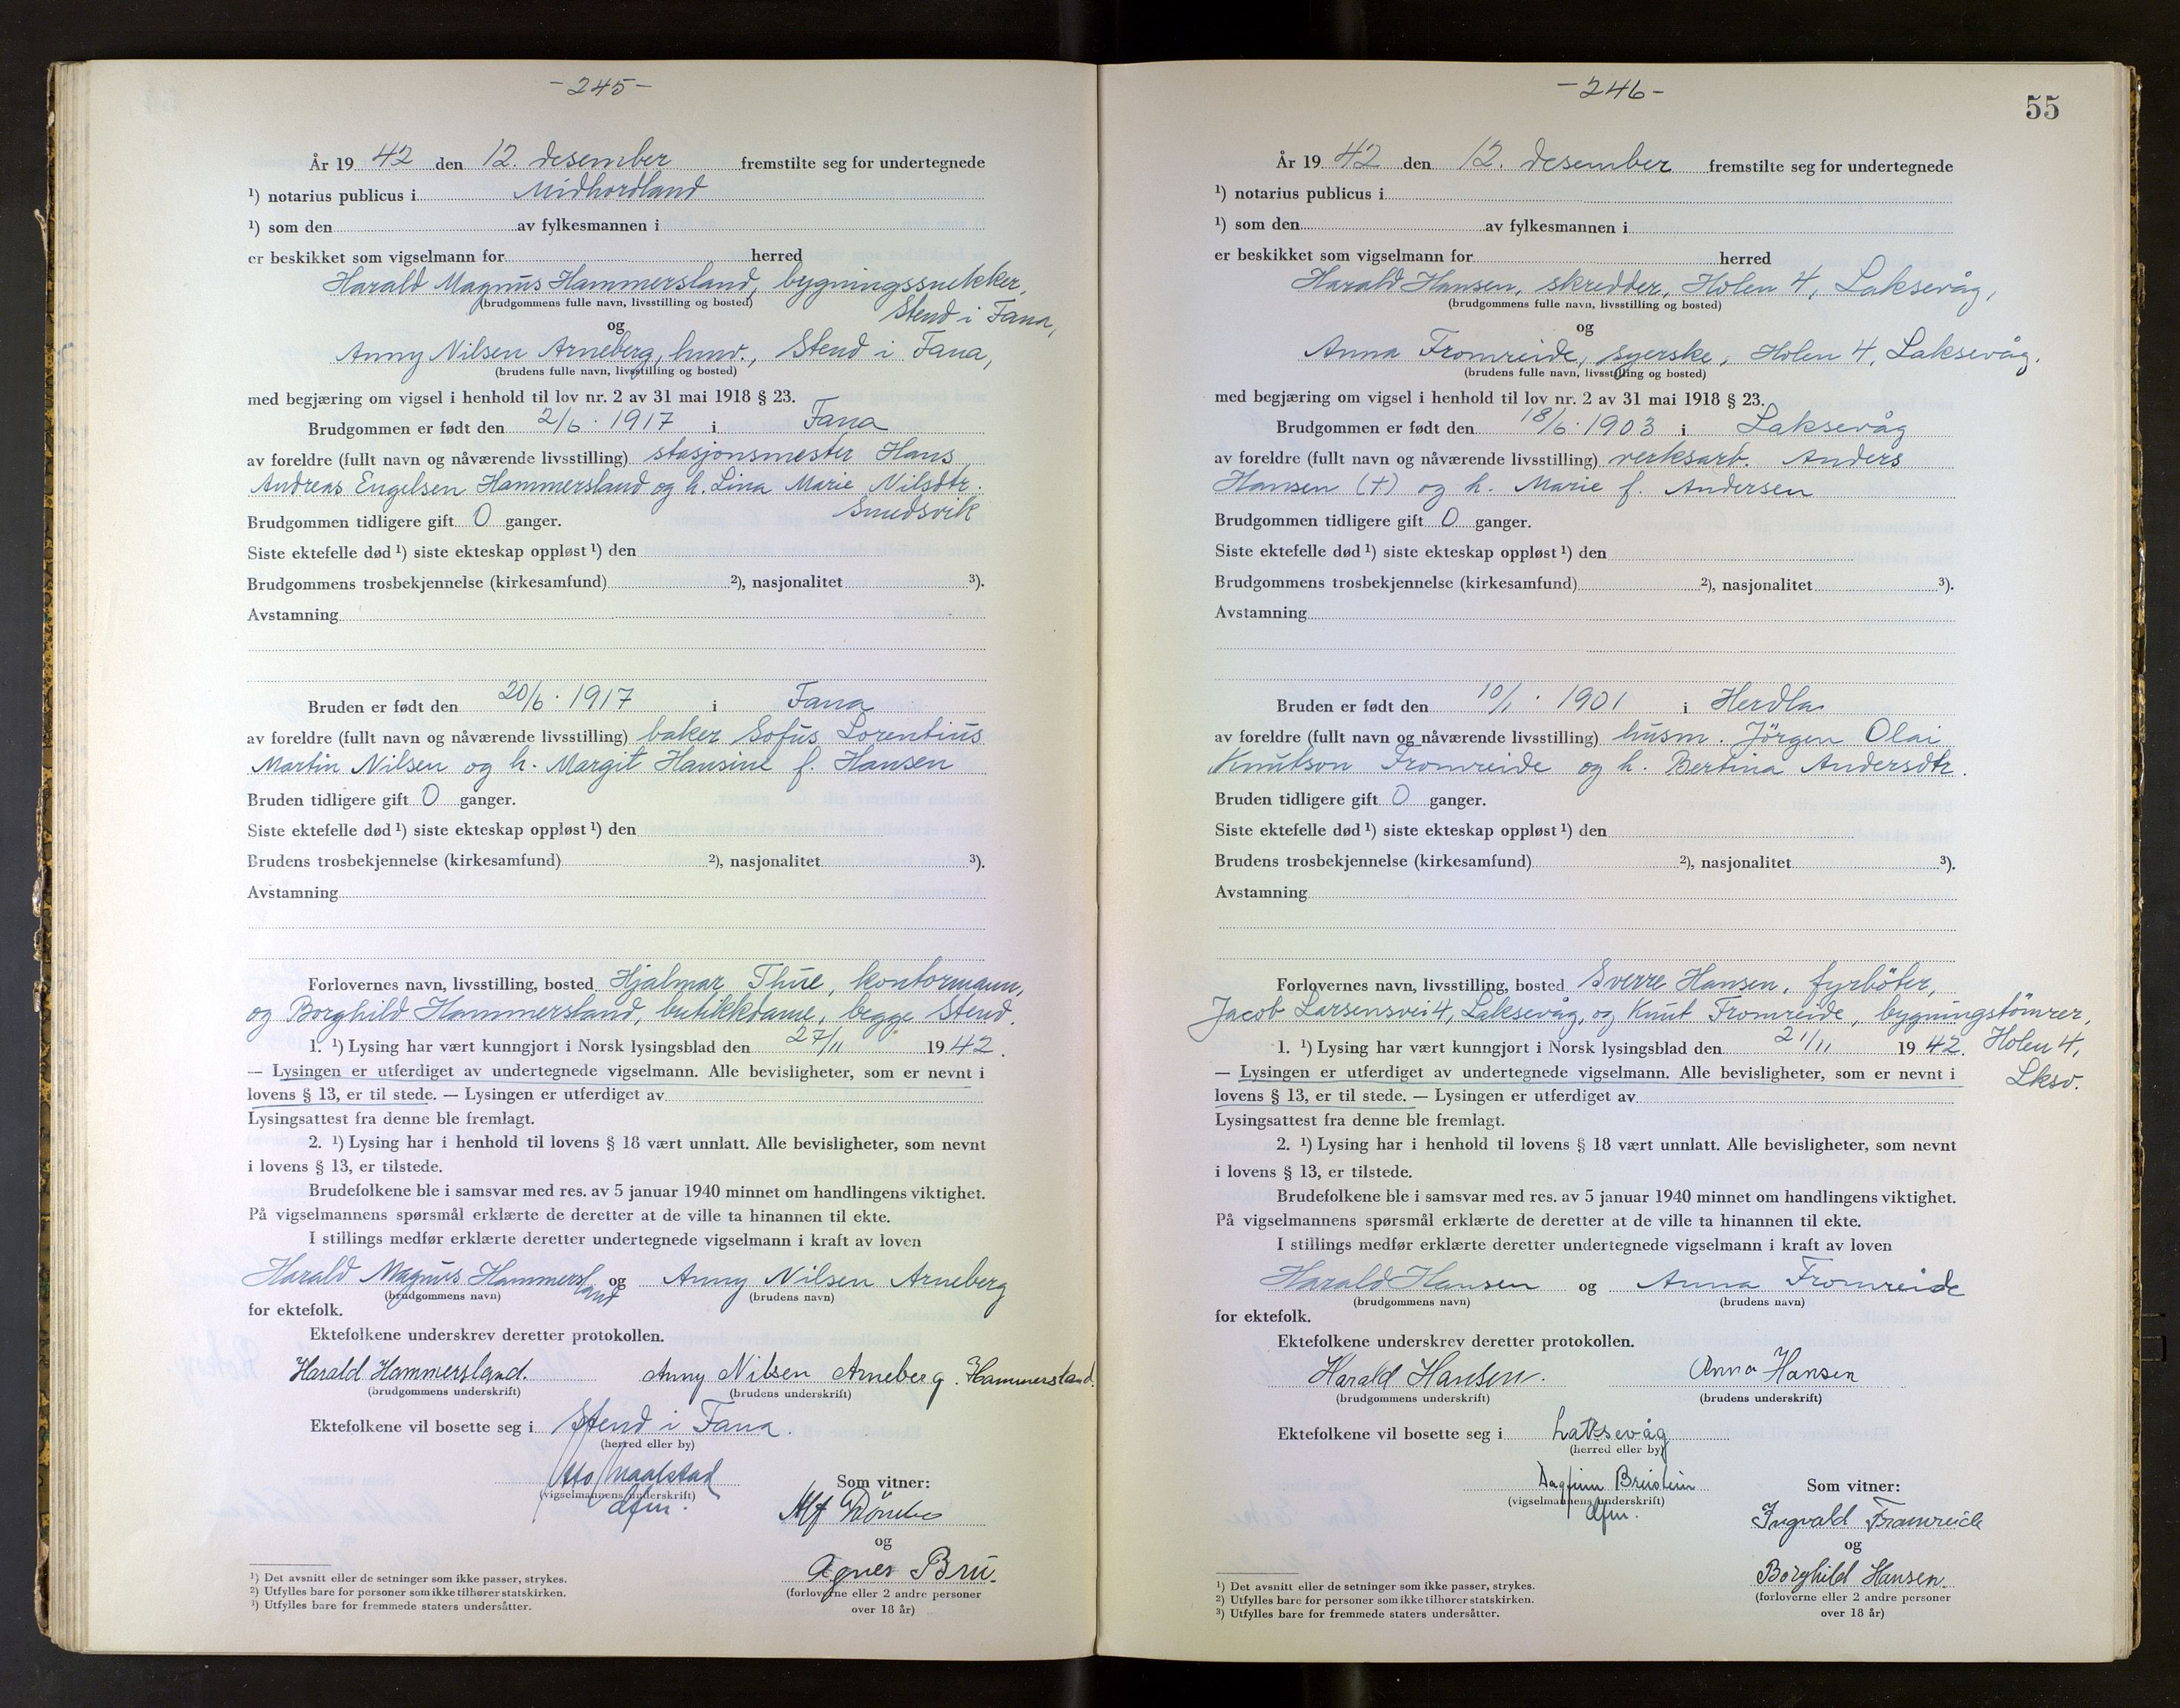 -245-
År 19 42 den 12. desember fremstilte seg for undertegnede
¹) notarius publicus i Midhordland
¹) som den av fylkesmannen i
er beskikket som vigselmann for herred
Harald Magnus Hammersland, bygningssnekker,
(brudgommens fulle navn, livsstilling og bosted)
Stend i Fana,
og
Anny Nilsen Arneberg, husv., Stend i Fana,
(brudens fulle navn, livsstilling og bosted)
med begjæring om vigsel i henhold til lov nr. 2 av 31 mai 1918 § 23.
Brudgommen er født den 2/6. 1917 i Fana
av foreldre (fullt navn og nåværende livsstilling) stasjonsmester Hans
Andreas Engelsen Hammersland og h. Lina Marie Nilsdtr.
Smedsvik
Brudgommen tidligere gift 0 ganger.
Siste ektefelle død ¹) siste ekteskap oppløst ¹) den
Brudgommens trosbekjennelse (kirkesamfund) ²), nasjonalitet ³).
Avstamning
Bruden er født den 20/6. 1917 i Fana
av foreldre (fullt navn og nåværende livsstilling) baker Sofus Lorentius
Martin Nilsen og h. Margit Hansine f. Hansen
Bruden tidligere gift 0 ganger.
Siste ektefelle død ¹) siste ekteskap oppløst ¹) den
Brudens trosbekjennelse (kirkesamfund) ²), nasjonalitet ³).
Avstamning
Forlovernes navn, livsstilling, bosted Hjalmar Thue, kontormann,
og Borghild Hammersland, butikkdame, begge Stend.
1. ¹) Lysing har vært kunngjort i Norsk lysingsblad den 27/11 19 42.
— Lysingen er utferdiget av undertegnede vigselmann. Alle bevisligheter, som er nevnt i
lovens § 13, er til stede. — Lysingen er utferdiget av
Lysingsattest fra denne ble fremlagt.
2. ¹) Lysing har i henhold til lovens § 18 vært unnlatt. Alle bevisligheter, som nevnt
i lovens § 13, er tilstede.
Brudefolkene ble i samsvar med res. av 5 januar 1940 minnet om handlingens viktighet.
På vigselmannens spørsmål erklærte de deretter at de ville ta hinannen til ekte.
I stillings medfør erklærte deretter undertegnede vigselmann i kraft av loven
Harald Magnus Hammersland og Anny Nilsen Arneberg
(brudgommens navn) (brudens navn)
for ektefolk.
Ektefolkene underskrev deretter protokollen.
Harald Hammersland. Anny Nilsen Arneberg. Hammersland.
(brudgommens underskrift) (brudens underskrift)
Ektefolkene vil bosette seg i Stend i Fana.
(herred eller by)
Otto
(vigselmannens underskrift)
dfm.
Som vitner:
Alf
og
Agnes Bru.
(forloverne eller 2 andre personer
over 18 år)
¹) Det avsnitt eller de setninger som ikke passer, strykes.
²) Utfylles bare for personer som ikke tilhører statskirken.
³) Utfylles bare for fremmede staters undersåtter.
-246-
55
År 19 42 den 12. desember fremstilte seg for undertegnede
¹) notarius publicus i
¹) som den av fylkesmannen i
er beskikket som vigselmann for herred
Harald Hansen, skredder, Holen 4, Laksevåg,
(brudgommens fulle navn, livsstilling og bosted)
og
Anna Fromreide, syerske, Holen 4, Laksevåg.
(brudens fulle navn, livsstilling og bosted)
med begjæring om vigsel i henhold til lov nr. 2 av 31 mai 1918 § 23.
Brudgommen er født den 18/6. 1903 i Laksevåg
av foreldre (fullt navn og nåværende livsstilling) verksarb. Anders
Hansen (†) og h. Marie f. Andersen
Brudgommen tidligere gift 0 ganger.
Siste ektefelle død ¹) siste ekteskap oppløst ¹) den
Brudgommens trosbekjennelse (kirkesamfund) ²), nasjonalitet ³).
Avstamning
Bruden er født den 10/1. 1901 i Herdla
av foreldre (fullt navn og nåværende livsstilling) husm. Jörgen Olai
Knutson Fromreide og h. Bertina Andersdtr.
Bruden tidligere gift 0 ganger.
Siste ektefelle død ¹) siste ekteskap oppløst ¹) den
Brudens trosbekjennelse (kirkesamfund) ²), nasjonalitet ³).
Avstamning
Forlovernes navn, livsstilling, bosted Sverre Hansen, fyrböter,
Jacob Larsensvei 4, Laksevåg, og Knut Fromreide, bygningstömrer,
1. ¹) Lysing har vært kunngjort i Norsk lysingsblad den 21/11 19 42. Holen 4,
— Lysingen er utferdiget av undertegnede vigselmann. Alle bevisligheter, som er nevnt i Lksv.
lovens § 13, er til stede. — Lysingen er utferdiget av
Lysingsattest fra denne ble fremlagt.
2. ¹) Lysing har i henhold til lovens § 18 vært unnlatt. Alle bevisligheter, som nevnt
i lovens § 13, er tilstede.
Brudefolkene ble i samsvar med res. av 5 januar 1940 minnet om handlingens viktighet.
På vigselmannens spørsmål erklærte de deretter at de ville ta hinannen til ekte.
I stillings medfør erklærte deretter undertegnede vigselmann i kraft av loven
Harald Hansen og Anna Fromreide
(brudgommens navn) (brudens navn)
for ektefolk.
Ektefolkene underskrev deretter protokollen.
Harald Hansen. Anna Hansen
(brudgommens underskrift) (brudens underskrift)
Ektefolkene vil bosette seg i Laksevåg
(herred eller by)
Dagfinn Breistein
(vigselmannens underskrift)
dfm.
Som vitner:
Ingvald Fromreide
og
Borghild Hansen.
(forloverne eller 2 andre personer
over 18 år)
¹) Det avsnitt eller de setninger som ikke passer, strykes.
²) Utfylles bare for personer som ikke tilhører statskirken.
³) Utfylles bare for fremmede staters undersåtter.